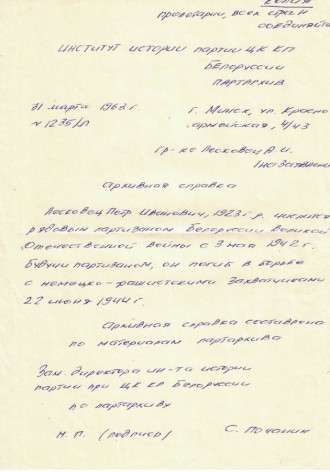 КОПИЯ
Пролетарии, всех стран
соединяйтесь
ИНСТИТУТ ИСТОРИИ ПАРТИИ ЦК КП
БЕЛОРУССИИ
ПАРТАРХИВ
31 марта 1963 г.
г. Минск, ул. Красно
№ 1235/Л
армейская, 4/43
гр-ке Лесковец А.И.
Архивная справка
Лесковец Петр Иванович, 1923 г.р. числится
рядовым партизаном Белоруссии Великой
Отечественной войны с 3 мая 1942 г.
Будучи партизаном, он погиб в борьбе
с немецко-фашистскими захватчиками
22 июня 1944 г.
Архивная справка составлена
по материалам партархива
Зам. директора ин-та истории
партии при ЦК КП Белоруссии
по партархиву
М.П. (подпись) С. Почанин